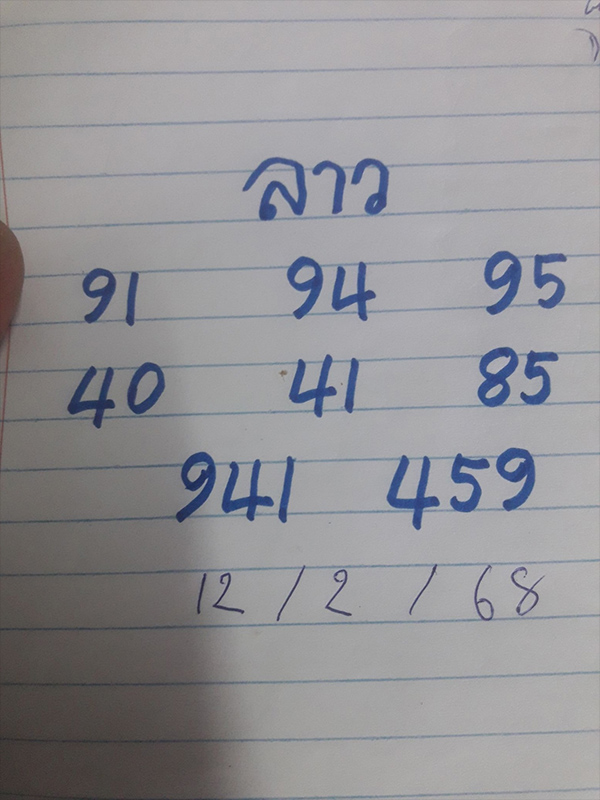 ลาว
91 94 95
40 41 85
941 459
12 / 2 / 68